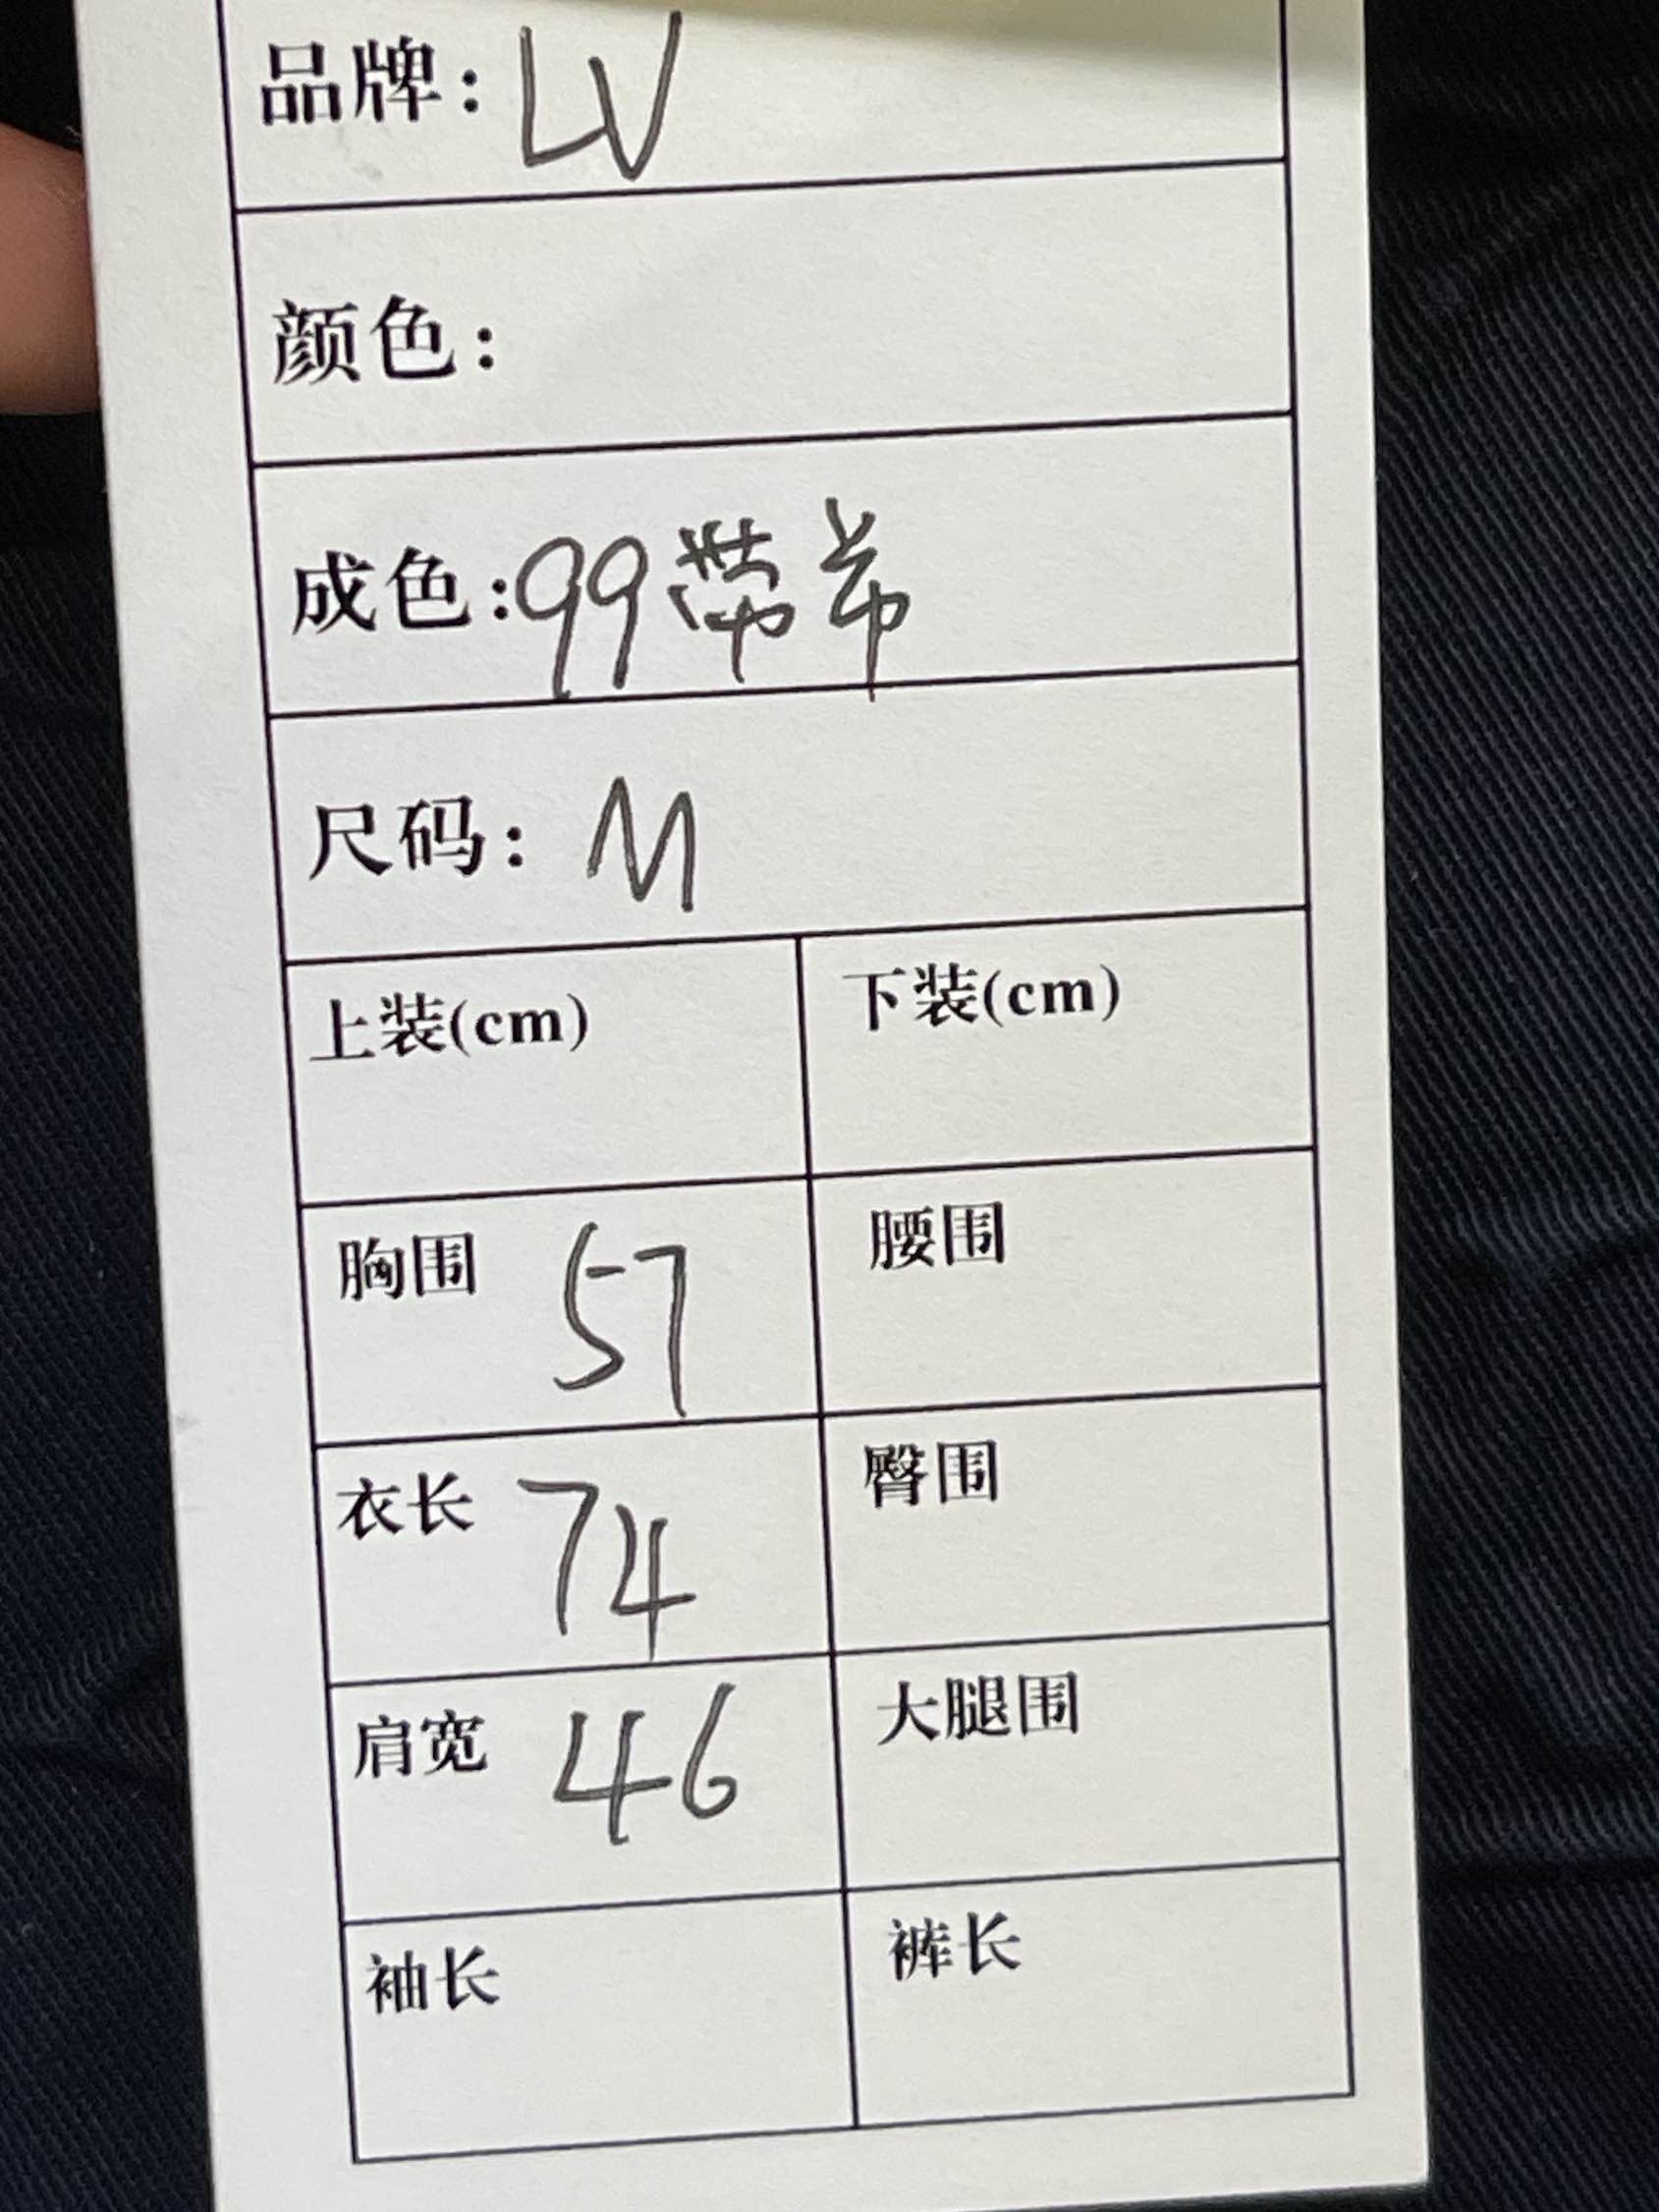 品牌：LV
颜色：
成色：99带吊
尺码：M
上装(cm) 下装(cm)
胸围 57 腰围
衣长 74 臀围
肩宽 46 大腿围
袖长 裤长